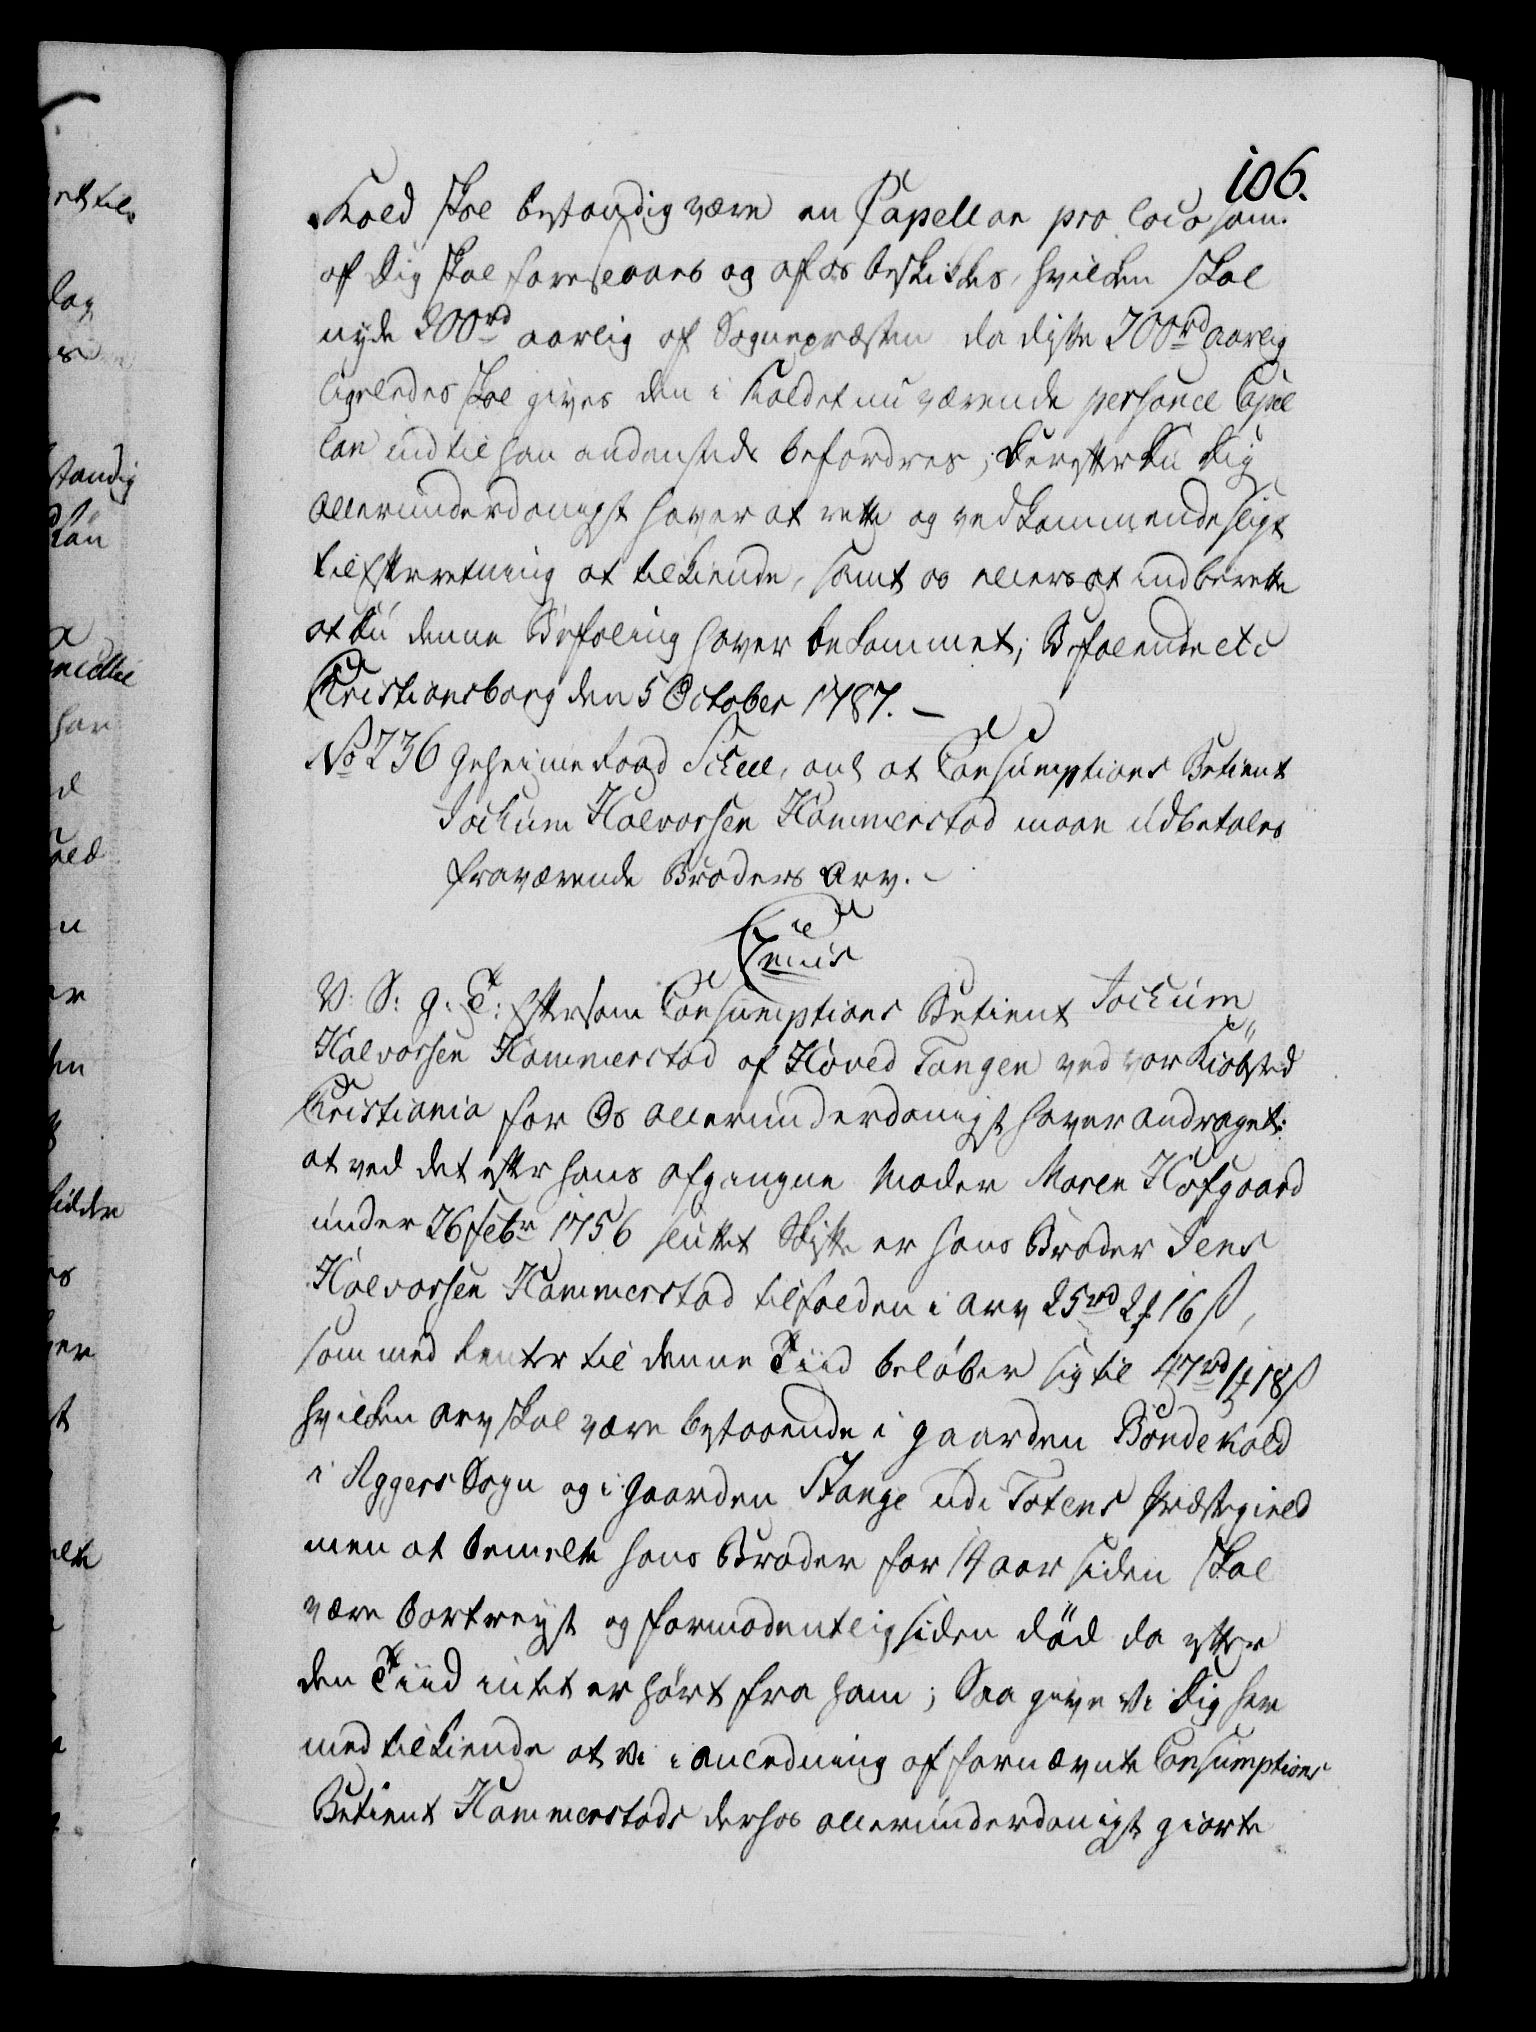 106.
Kald skal bestandig være en Capellan pro loco som
af Dig skal foreslaaes og af os beskikkes, hvilken skal
nyde 200 rd aarlig af Sognepræsten da disse 200 rd aarlig
ligeledes skal gives den i Kaldet nu værende personel Capel
lan indtil han andensteds befordres; Derefter Du Dig
allerunderdanigst haver at rette og vedkommende sligt
til Efterretning at tilkiende, samt os allerst indberette
at Du denne Befaling haver bekommet; Befalende etc
Christiansborg den 5 October 1787. —
No 236 Geheime Raad Scheel, anl at Consumptions Betient
Jochum Halvorsen Hammerstad maae udbetales
fraværende Broders Arv. –
C 7
V: S: g: T: Eftersom Consumptions Betient Jochum
Halvorsen Hammerstad af Hoved Tangen ved vor Kiöbsted
Christiania for Os allerunderdanigst haver andraget:
at ved det efter hans afgangne Moder Maren Hofgaard
under 26 Febr 1756 sluttet Skifte er hans Broder Jens
Halvorsen Hammerstad tilfalden i Arv 25 rd 2 ß 16 ß,
som med Renter til denne Tiid beløber sig til 47 rd 1 ß 18 ß
hvilken Arv skal være bestaaende i Gaarden Bönde Kald
i Aggers Sogn og i Gaarden Stange udi Totens Præstegield
men at bemelte hans Broder for 14 aar siden skal
være bortreyst og formodentlig siden død da efter
den Tiid intet er hørt fra ham; Saa give Vi Dig her
med tilkiende at Vi i anledning af fornævnte Consumptions
Betient Hammerstads derhos allerunderdanigst giorte